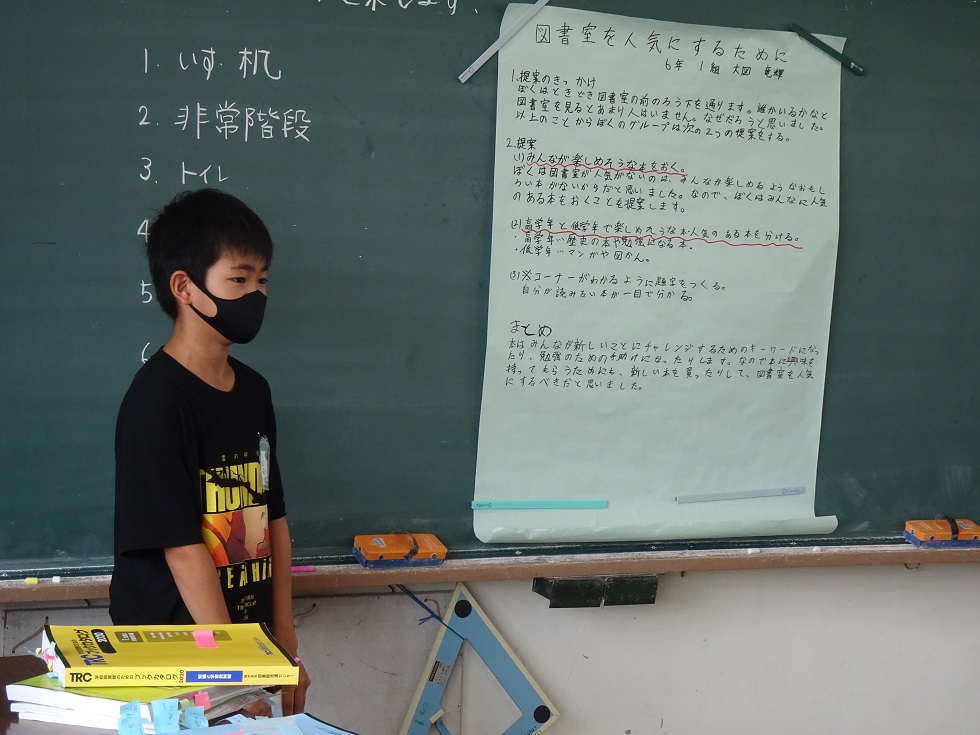 1. いす 机
2. 非常階段
3. トイレ
4
5
6
図書室を人気にするために
6年 1組 大図 竜輝
1.提案のきっかけ
ぼくはときどき図書室の前のろう下を通ります。誰かいるかなと
図書室を見るとあまり人はいません。なぜだろうと思いました。
以上のことからぼくのグループは次の2つの提案をする。
2.提案
(1)みんなが楽しめそうな本をおく。
ぼくは図書室が人気がないのは、みんなが楽しめるようなおもし
ろい本がないからだと思いました。なので、ぼくはみんなに人気
のある本をおくことを提案します。
(2)高学年と低学年で楽しめそうな本・人気のある本を分ける。
・高学年…歴史の本や勉強になる本。
・低学年…マンガや図かん。
(3)※コーナーがわかるように題字をつくる。
自分が読みたい本が一目で分かる。
まとめ
本はみんなが新しいことにチャレンジするためのキーワードになっ
たり、勉強のための手助けになったりします。なので本に興味を
持ってもらうためにも、新しい本を買ったりして、図書室を人気
にするべきだと思いました。
TRC
ブックカタログ 2020